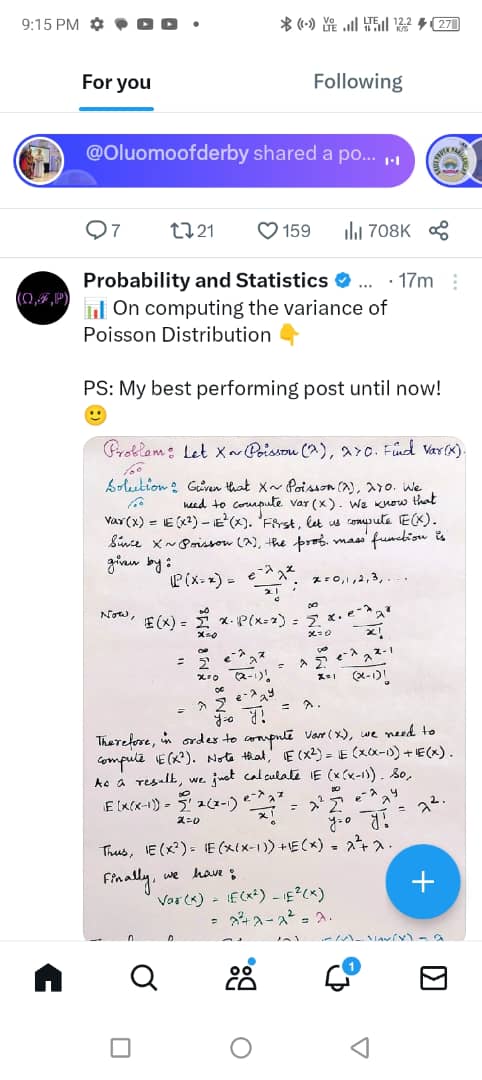 9:15 PM
Vo LTE LTE 12.2 K/S 27
For you Following
@Oluomoofderby shared a po...
7 21 159 708K
(Ω,ℱ,ℙ)
Probability and Statistics ... · 17m
📊 On computing the variance of
Poisson Distribution 👇
PS: My best performing post until now!
🙂
Problem: Let X ~ Poisson(λ), λ>0. Find Var(X).
Solution: Given that X ~ Poisson(λ), λ>0. We
need to compute Var(X). We know that
Var(X) = E(X²) – E²(X). First, let us compute E(X).
Since X ~ Poisson(λ), the prob. mass function is
given by:
P(X=x) = e^{-λ} λ^x / x! ; x = 0,1,2,3,...
Now, E(X) = Σ_{x=0}^∞ x · P(X=x) = Σ_{x=0}^∞ x · e^{-λ} λ^x / x!
= Σ_{x=0}^∞ e^{-λ} λ^x / (x-1)! = λ Σ_{x=1}^∞ e^{-λ} λ^{x-1} / (x-1)!
= λ Σ_{y=0}^∞ e^{-λ} λ^y / y! = λ.
Therefore, in order to compute Var(X), we need to
compute E(X²). Note that, E(X²) = E(X(X-1)) + E(X).
As a result, we just calculate E(X(X-1)). So,
E[X(X-1)) = Σ_{x=0}^∞ x(x-1) e^{-λ} λ^x / x! = λ² Σ_{y=0}^∞ e^{-λ} λ^y / y! = λ².
Thus, E(X²) = E(X(X-1)) + E(X) = λ² + λ.
Finally, we have:
Var(X) = E(X²) – E²(X)
= λ² + λ – λ² = λ.
1